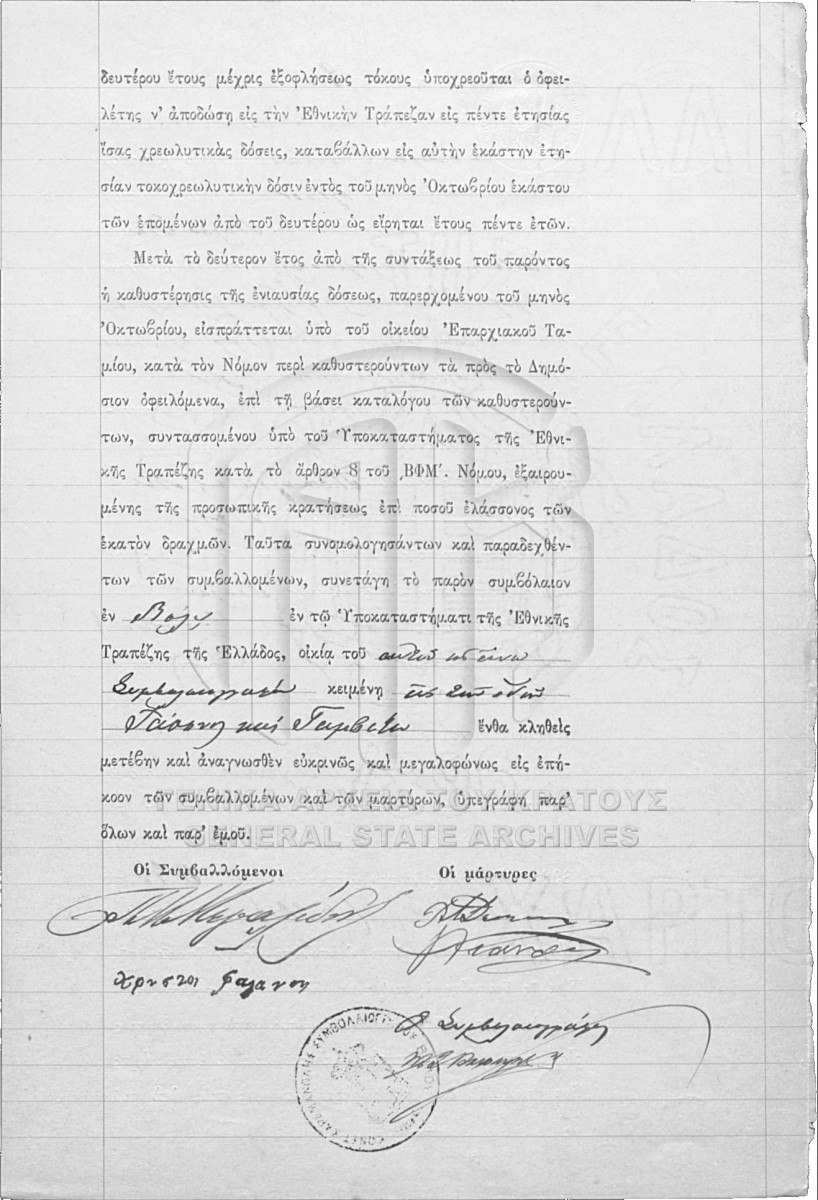 δευτέρου ἔτους μέχρις ἐξοφλήσεως τόκους ὑποχρεοῦται ὁ ὀφει-
λέτης ν' ἀποδώσῃ εἰς τὴν Ἐθνικὴν Τράπεζαν εἰς πέντε ἐτησίας
ἴσας χρεωλυτικὰς δόσεις, καταβάλλων εἰς αὐτὴν ἑκάστην ἐτη-
σίαν τοκοχρεωλυτικὴν δόσιν ἐντὸς τοῦ μηνὸς Ὀκτωβρίου ἑκάστου
τῶν ἑπομένων ἀπὸ τοῦ δευτέρου ὡς εἴρηται ἔτους πέντε ἐτῶν.
Μετὰ τὸ δεύτερον ἔτος ἀπὸ τῆς συντάξεως τοῦ παρόντος
ἡ καθυστέρησις τῆς ἐνιαυσίας δόσεως, παρερχομένου τοῦ μηνὸς
Ὀκτωβρίου, εἰσπράττεται ὑπὸ τοῦ οἰκείου Ἐπαρχιακοῦ Τα-
μίου, κατὰ τὸν Νόμον περὶ καθυστερούντων τὰ πρὸς τὸ Δημό-
σιον ὀφειλόμενα, ἐπὶ τῇ βάσει καταλόγου τῶν καθυστερούν-
των, συντασσομένου ὑπὸ τοῦ Ὑποκαταστήματος τῆς Ἐθνι-
κῆς Τραπέζης κατὰ τὸ ἄρθρον 8 τοῦ ͵ΒΦΜ΄. Νόμου, ἐξαιρου-
μένης τῆς προσωπικῆς κρατήσεως ἐπὶ ποσοῦ ἐλάσσονος τῶν
ἑκατὸν δραχμῶν. Ταῦτα συνομολογησάντων καὶ παραδεχθέν-
των τῶν συμβαλλομένων, συνετάγη τὸ παρὸν συμβόλαιον
ἐν Βόλῳ ἐν τῷ Ὑποκαταστήματι τῆς Ἐθνικῆς
Τραπέζης τῆς Ἑλλάδος, οἰκίᾳ τοῦ
Συμβολαιογράφου κειμένῃ εἰς τὴν ὁδὸν
καὶ Γαμβέτα ἔνθα κληθεὶς
μετέβην καὶ ἀναγνωσθὲν εὐκρινῶς καὶ μεγαλοφώνως εἰς ἐπή-
κοον τῶν συμβαλλομένων καὶ τῶν μαρτύρων, ὑπεγράφη παρ'
ὅλων καὶ παρ' ἐμοῦ.
ΓΕΝΙΚΑ ΑΡΧΕΙΑ ΤΟΥ ΚΡΑΤΟΥΣ
GENERAL STATE ARCHIVES
Οἱ Συμβαλλόμενοι Οἱ μάρτυρες
Χρῆστος
Ὁ Συμβολαιογράφος